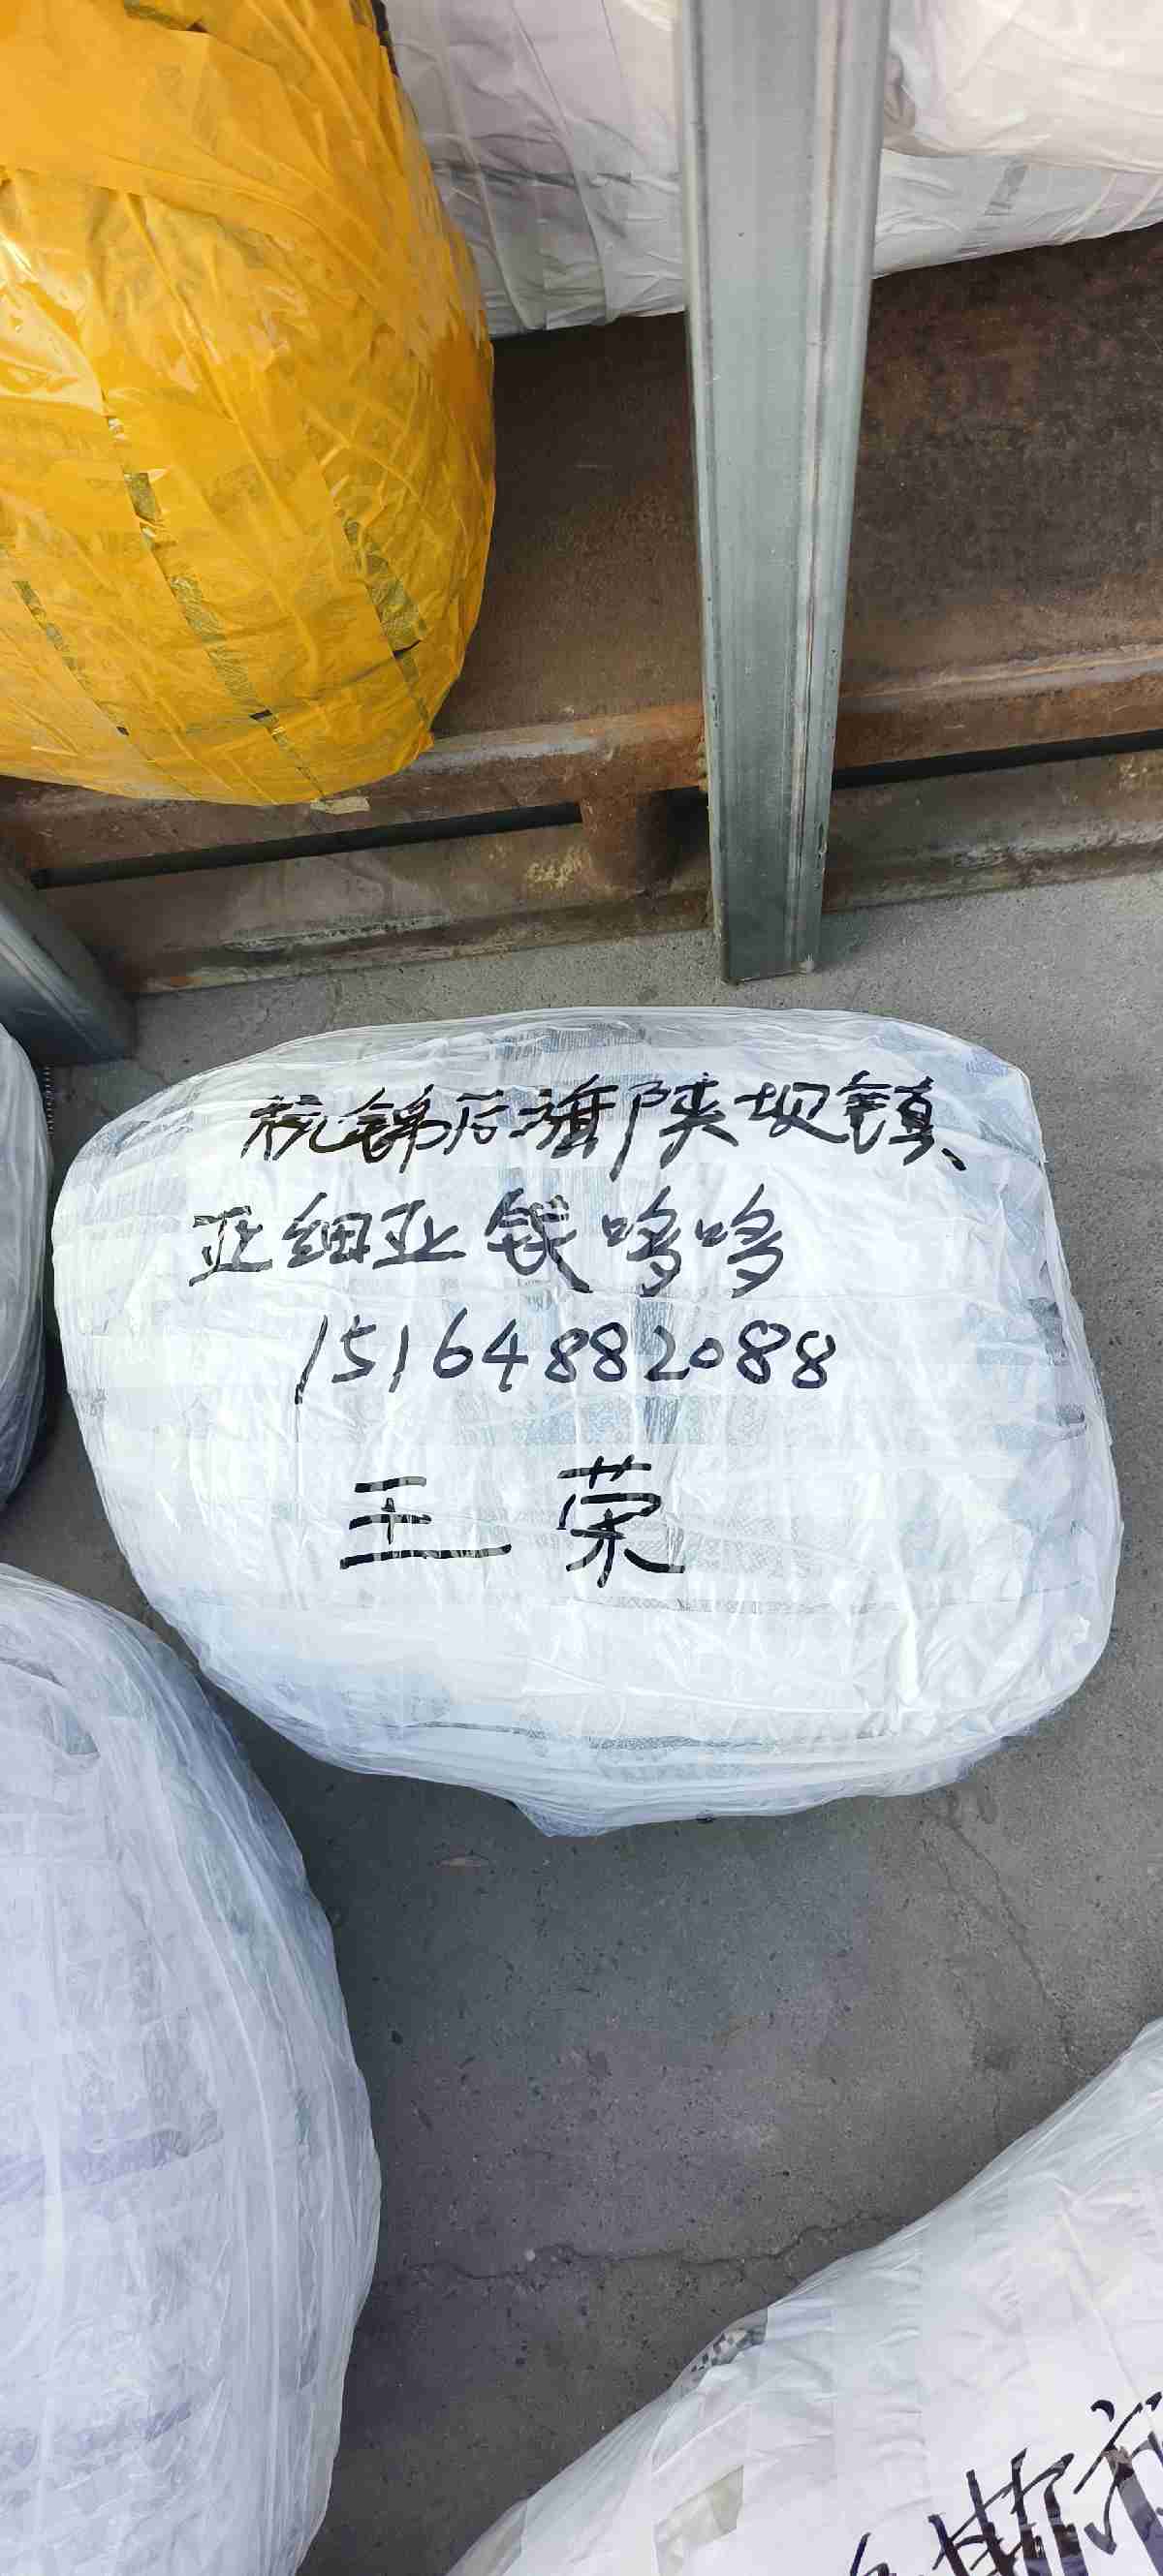 杭锦后旗陕坝镇
亚细亚钱哆哆
15164882088
王荣
斯